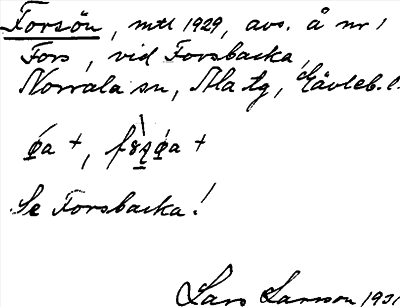 Forsön, mtl 1929, avs. å nr 1
Fors, vid Forsbacka,
Norrala sn, Ala tg, Gävleb. l.
Se Forsbacka!
Lars Larsson